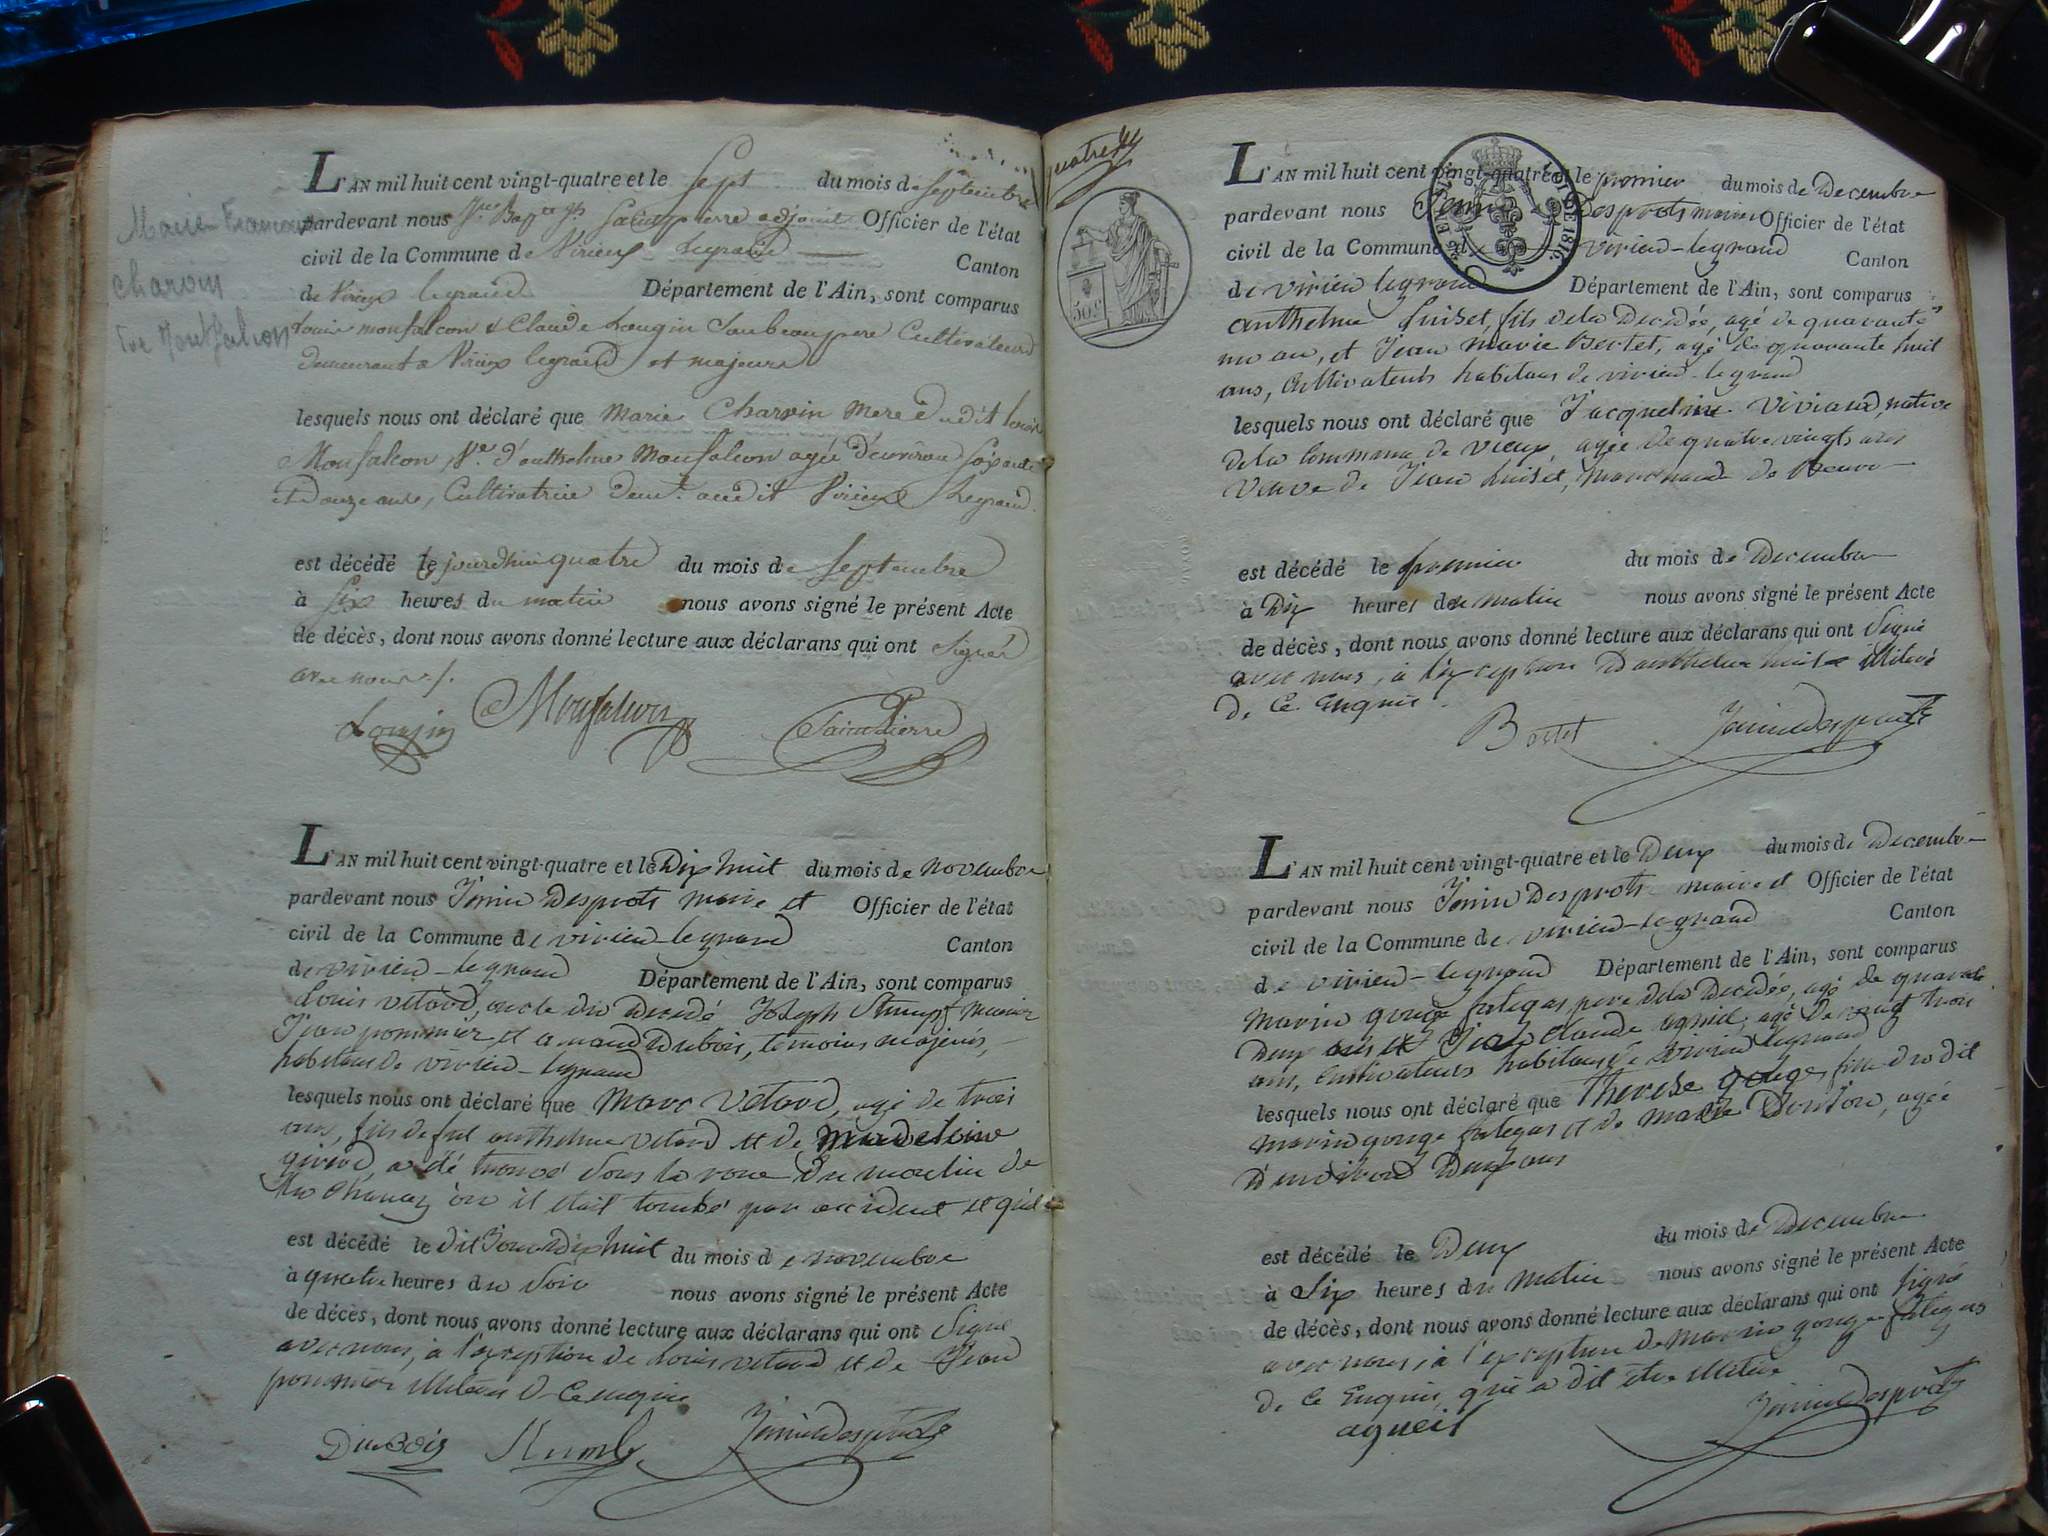 Marie Francoise
charvin
L'AN mil huit cent vingt-quatre et le Sept du mois de Septembre
pardevant nous Saintpierre adjoint Officier de l'état
civil de la Commune de Virieux Legrand Canton
de Virieux legrand Département de l'Ain, sont comparus
Louis monfalcon & Claude Longin Cultivateurs
demeurant a Virieux legrand et majeurs
lesquels nous ont déclaré que Marie Charvin Mere dudit Louis
Monfalcon, Ve. d'anthelme Monfalcon agée d'environ soixante
et Douze ans, Cultivatrice demt. audit Virieux Legrand.
est décédé le jourdhui quatre du mois de Septembre
à Six heures du matin nous avons signé le présent Acte
de décès, dont nous avons donné lecture aux déclarans qui ont Signés
avec nous
Longin Monfalcon Saintpierre
L'AN mil huit cent vingt-quatre et le Dix huit du mois de novembre
pardevant nous Janin Desprots maire et Officier de l'état
civil de la Commune de virieu-legrand Canton
de virieu-legrand Département de l'Ain, sont comparus
Louis vetard, oncle du Décédé Joseph Stumpf
Jean pommier et amand Dubois, temoins majeurs,
habitans de virieu-legrand
lesquels nous ont déclaré que Marc Vetard, agé de trois
ans, fils de fut anthelme vetard et de Madeleine
girard, a été trouvé sous la roue du moulin de
où il était tombé par accident et qu'il
est décédé le dit Jour Dix huit du mois de novembre
à quatre heures du Soir nous avons signé le présent Acte
de décès, dont nous avons donné lecture aux déclarans qui ont Signé
avec nous, à l'exception de Louis vetard et de Jean
pommier illiterés De ce enquis
DuBois Janin Desprots
L'AN mil huit cent vingt-quatre et le premier du mois de Decembre
pardevant nous Desprots maire Officier de l'état
civil de la Commune de virieu-legrand Canton
50c
de virieu legrand Département de l'Ain, sont comparus
anthelme Luiset, fils dela Decedée, agé de quarante
un an, et Jean Marie Bertet, agé de quarante huit
ans, Cultivateurs habitans de virieu-legrand
lesquels nous ont déclaré que Jacqueline Viviand, native
dela Commune de Vieux, agée de quatre vingts ans
Veuve de Jean Luiset,
est décédé le premier du mois de Decembre
à Dix heures du matin nous avons signé le présent Acte
de décès, dont nous avons donné lecture aux déclarans qui ont Signé
avec nous, à l'exception D'anthelme Luiset illiteré
De Ce Enquis.
Bertet Janin Desprots
L'AN mil huit cent vingt-quatre et le Deux du mois de Decembre
pardevant nous Janin Desprots maire et Officier de l'état
civil de la Commune de virieu-legrand Canton
de virieu-legrand Département de l'Ain, sont comparus
Marin gouge falegas pere dela Decedée, agé de quarante
Deux ans et Jean Claude agniel, agé De vingt trois
ans, Cultivateurs habitans de virieu legrand
lesquels nous ont déclaré que Therese gouge, fille du dit
Marin gouge falegas et de Marie, agée
D'environ Deux ans
est décédé le Deux du mois de Decembre
à Six heures du matin nous avons signé le présent Acte
de décès, dont nous avons donné lecture aux déclarans qui ont Signé
avec nous, à l'exception De marin gouge falegas
De Ce Enquis, qui a dit etre illiteré
agneil Janin Desprots